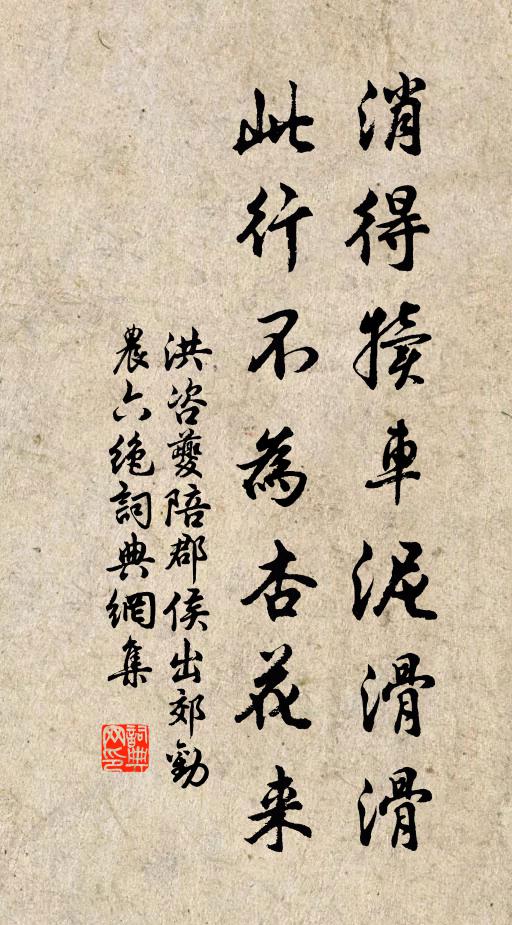 消得犢車泥滑滑
此行不為杏花来
洪咨夔陪郡侯出郊勸
農六绝詞典網集
詞典
网印